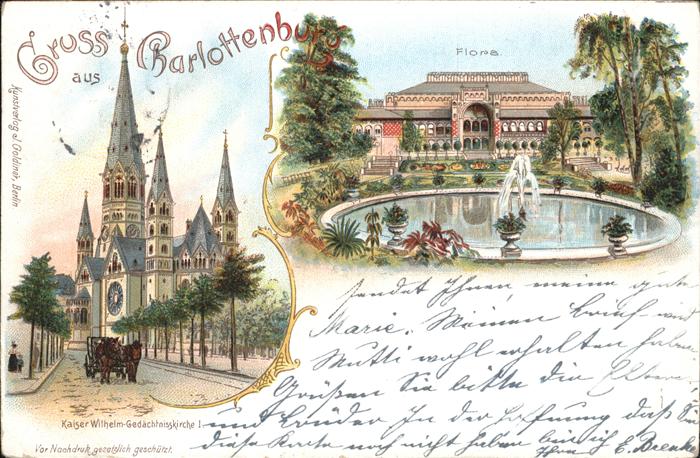 Gruss
aus
Charlottenburg
Flora.
Kunstverlag v. J. Goldiner, Berlin
Kaiser Wilhelm-Gedächtnisskirche I.
Vor Nachdruk gesetzlich geschützt.
sendet Ihnen meine gute
Marie. Meinen Brief wird
Mutti wohl erhalten haben
Grüßen Sie bitte die Eltern
und Brüder In der Hoffnung daß Sie
diese Karte noch nicht haben bin ich
Ihre E.